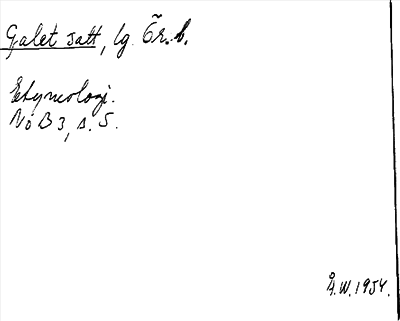 Galet satt, lg. Ör. h.
Etymologi.
NoB 3, s. 5.
Å.W. 1954.